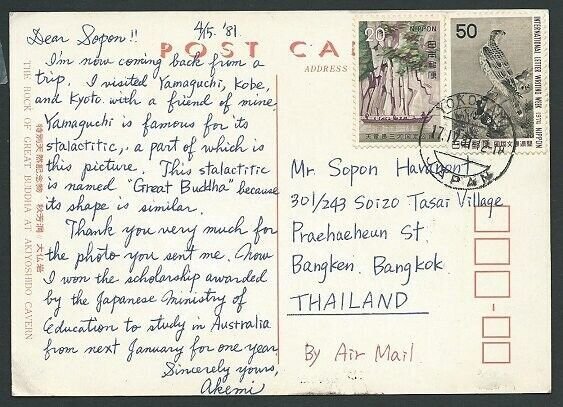 Dear Sopon!!
4/5. '81
I'm now coming back from a
trip. I visited Yamaguchi, Kobe,
and Kyoto with a friend of mine
Yamaguchi is famous for its
stalactitic, a part of which is
this picture. This stalactitic
is named "Great Buddha" because
its shape is similar.
Thank you very much for
the photo you sent me. Now
I won the scholarship awarded
by the Japanese Ministry of
Education to study in Australia
from next January for one year
Sincerely yours,
Akemi
POST CA
ADDRESS
20 NIPPON
日本郵便
50
INTERNATIONAL LETTER WRITING WEEK 1970 NIPPON
日本郵便
国際文通週間
YOKO
JAPAN
Mr. Sopon Havanont
301/243 Soizo Tasai Village
Praehaeheun St.
Bangken. Bangkok
THAILAND
By Air Mail
特別天然記念物 秋芳洞 大仏岩
THE ROCK OF GREAT BUDDHA AT AKIYOSHIDO CAVERN